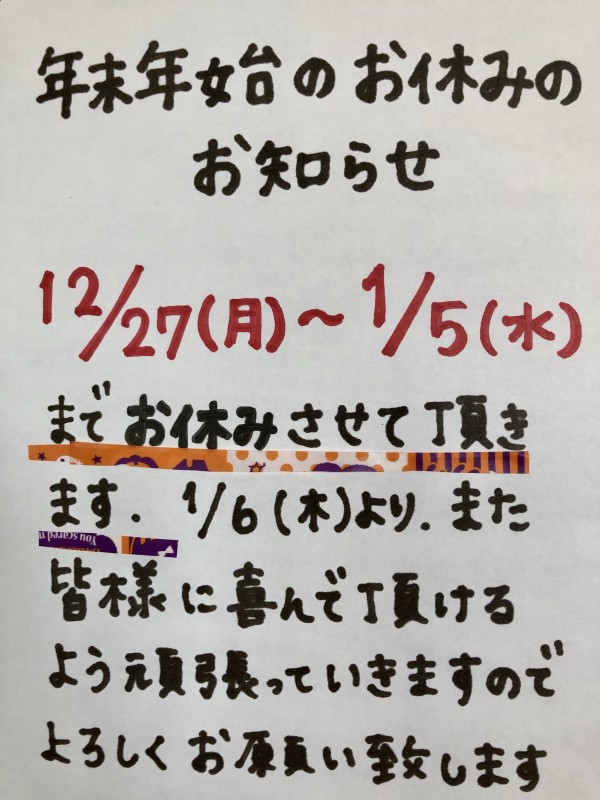 年末年始のお休みの
お知らせ
12/27(月)～1/5(水)
までお休みさせて頂き
ます. 1/6(木)より. また
You scared m
皆様に喜んで頂ける
よう頑張っていきますので
よろしくお願い致します